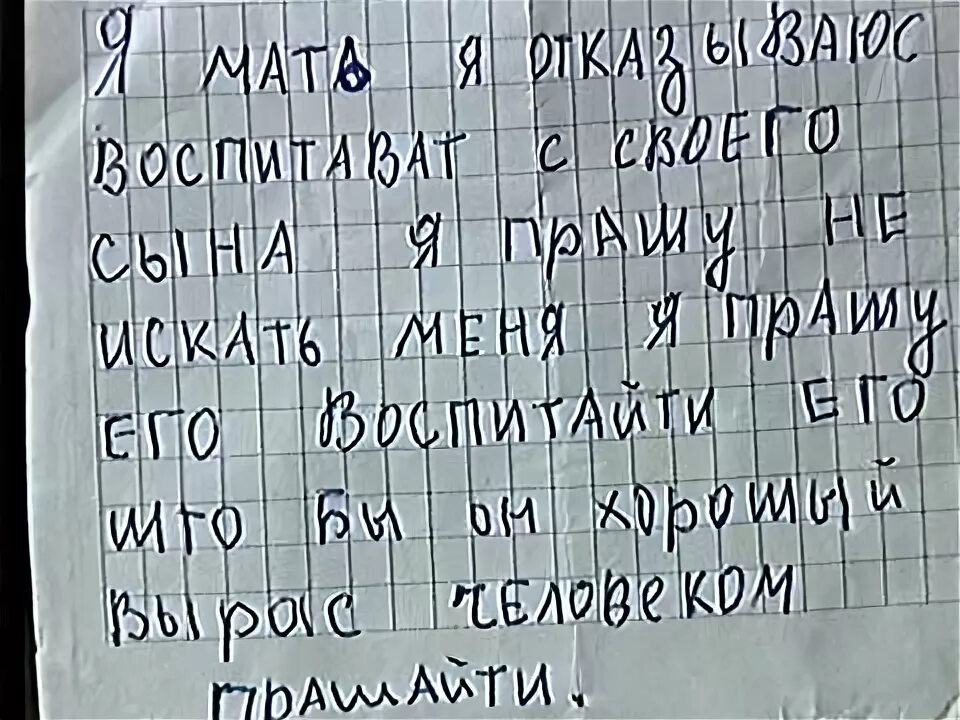 Я МАТЬ Я ОТКАЗЫВАЮС
ВОСПИТАВАТ С СВОЕГО
СЫНА Я ПРАШУ НЕ
ИСКАТЬ МЕНЯ Я ПРАШУ
ЕГО ВОСПИТАЙТИ ЕГО
ШТО БЫ ОН ХОРОШЫЙ
ВЫРОС ЧЕЛОВЕКОМ
ПРАШАЙТИ.